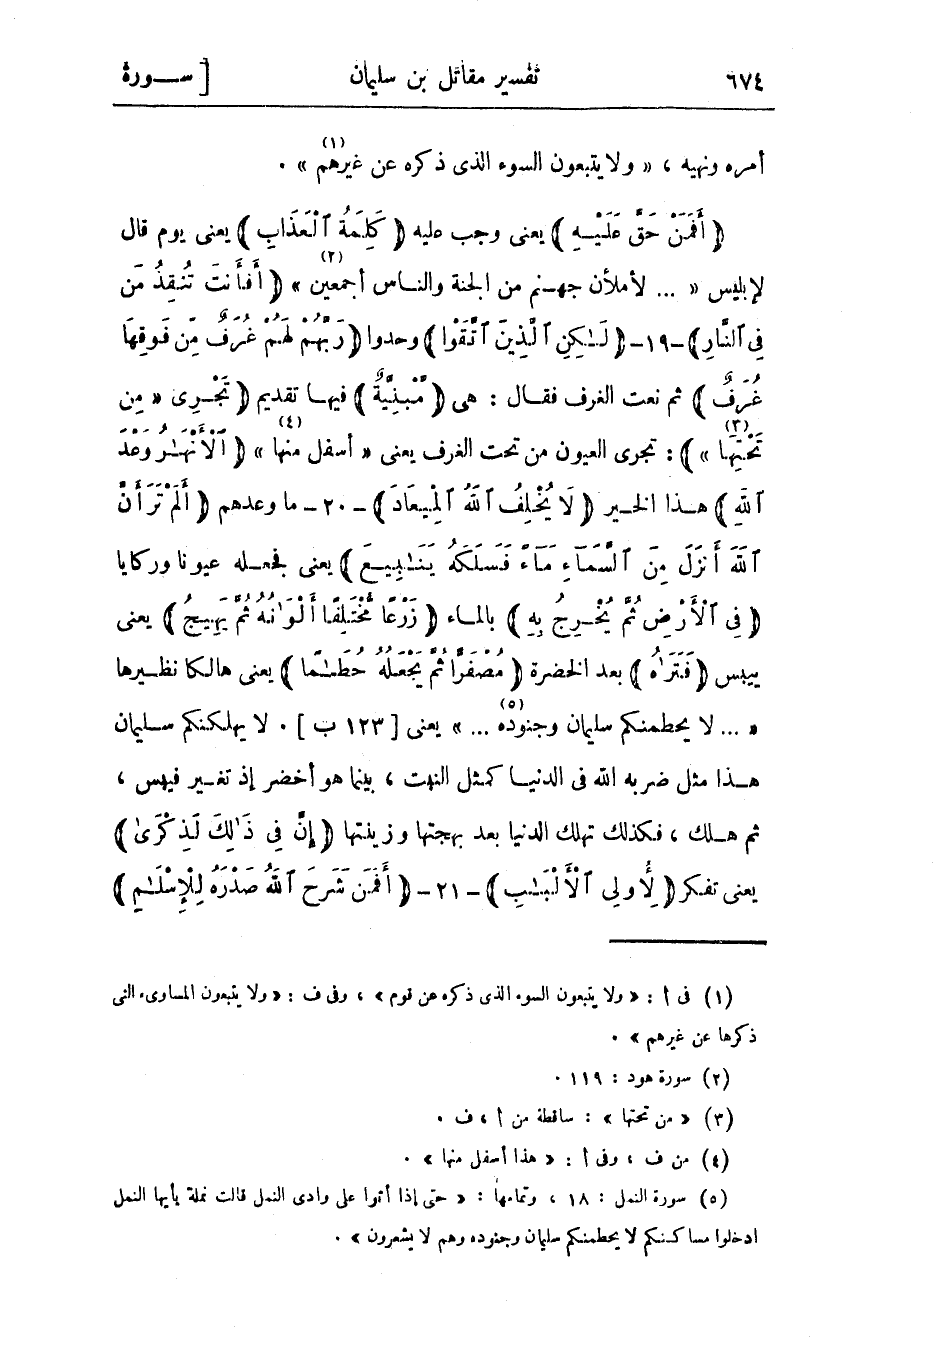 ٦٧٤ تفسير مقاتل بن سليمان [ ســورة
أمره ونهيه ، « ولا يتبعون السوء الذى ذكره عن غيرهم (١) » .
﴿ أَفَمَنْ حَقَّ عَلَيْهِ ﴾ يعنى وجب عليه ﴿ كَلِمَةُ ٱلْعَذَابِ ﴾ يعنى يوم قال
لإبليس « ... لأملأن جهنم من الجنة والناس أجمعين (٢) » ﴿ أَفَأَنتَ تُنقِذُ مَن
فِى ٱلنَّارِ ﴾ -١٩- ﴿ لَـٰكِنِ ٱلَّذِينَ ٱتَّقَوْا ﴾ وحدوا ﴿ رَبَّهُمْ لَهُمْ غُرَفٌ مِّن فَوْقِهَا
غُرَفٌ ﴾ ثم نعت الغرف فقال : هى ﴿ مَّبْنِيَّةٌ ﴾ فيها تقديم ﴿ تَجْرِى « مِن
تَحْتِهَا (٣) » ﴾ : تجرى العيون من تحت الغرف يعنى « أسفل منها (٤) » ﴿ ٱلْأَنْهَـٰرُ وَعْدَ
ٱللَّهِ ﴾ هـذا الخـير ﴿ لَا يُخْلِفُ ٱللَّهُ ٱلْمِيعَادَ ﴾ - ٢٠ - ما وعدهم ﴿ أَلَمْ تَرَ أَنَّ
ٱللَّهَ أَنزَلَ مِنَ ٱلسَّمَآءِ مَآءً فَسَلَكَهُ يَنَـٰبِيعَ ﴾ يعنى فجعـله عيونا وركايا
﴿ فِى ٱلْأَرْضِ ثُمَّ يُخْرِجُ بِهِ ﴾ بالماء ﴿ زَرْعًا مُّخْتَلِفًا أَلْوَٰنُهُ ثُمَّ يَهِيجُ ﴾ يعنى
ييبس ﴿ فَتَرَٰهُ ﴾ بعد الخضرة ﴿ مُصْفَرًّا ثُمَّ يَجْعَلُهُ حُطَـٰمًا ﴾ يعنى هالكا نظـيرها
« ... لا يحطمنكم سليمان وجنوده (٥) ... » يعنى [ ١٢٣ ب ] . لا يهلكنكم سـليمان
هـذا مثل ضربه الله فى الدنيـا كمثل النبت ، بينما هو أخضر إذ تغـير فيبس ،
ثم هـلك ، فكذلك تهلك الدنيا بعد بهجتها وزينتها ﴿ إِنَّ فِى ذَٰلِكَ لَذِكْرَىٰ ﴾
يعنى تفكر ﴿ لِأُولِى ٱلْأَلْبَـٰبِ ﴾ - ٢١ - ﴿ أَفَمَن شَرَحَ ٱللَّهُ صَدْرَهُ لِلْإِسْلَـٰمِ ﴾
(١) فى أ : « ولا يتبعون السوء الذى ذكره عن قوم » ، وفى ف : « ولا يتبعون المساوىء التى
ذكرها عن غيرهم » .
(٢) سورة هود : ١١٩ .
(٣) « من تحتها » : ساقطة من أ ، ف .
(٤) من ف ، وفى أ : « هذا أسفل منها » .
(٥) سورة النمل : ١٨ ، وتمامها : « حتى إذا أتوا على وادى النمل قالت نملة يأيها النمل
ادخلوا مساكنكم لا يحطمنكم سليمان وجنوده وهم لا يشعرون » .